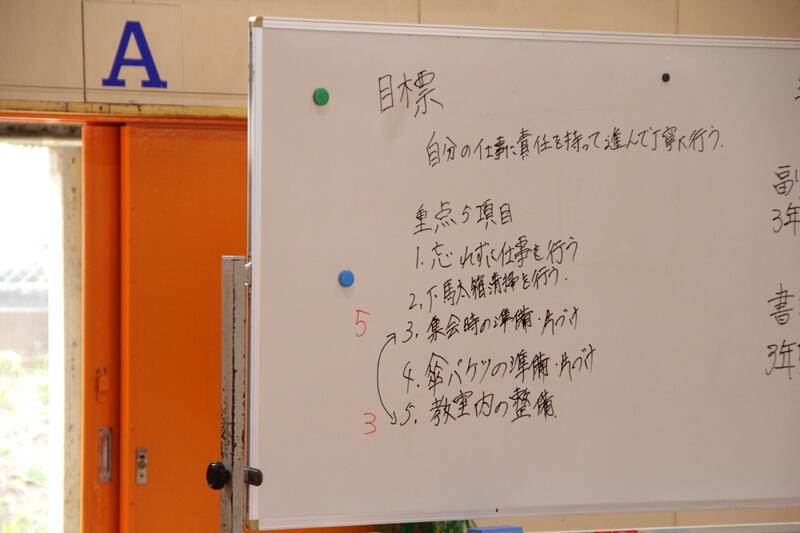 A
目標
自分の仕事に責任を持って進んで丁寧に行う.
重点5項目
1.忘れずに仕事を行う
2.下駄箱清掃を行う.
5
3.集会時の準備・片づけ
4.傘バケツの準備・片づけ
3
5.教室内の整備.
副
3年
書
3年